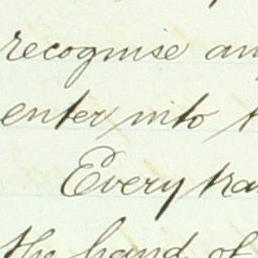 recognise an
enter into t
Every tra
the hand of